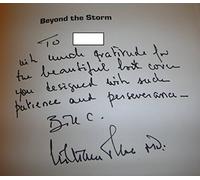 Beyond the Storm
To
with much gratitude for
the beautiful book cover
you designed with such
patience and perseverance —
Bill C.